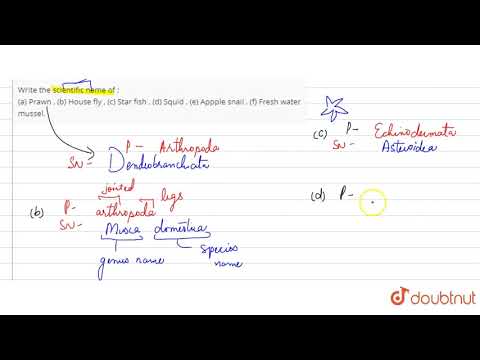 Write the scientific neme of :
(a) Prawn , (b) House fly , (c) Star fish , (d) Squid , (e) Appple snail , (f) Fresh water
mussel.
P - Arthropoda
SN - Dendrobranchiata
jointed
legs
(b) P - arthropoda
SN - Musca domestica
genus name
species
name
(c) P - Echinodermata
SN - Asteroidea
(d) P -
doubtnut